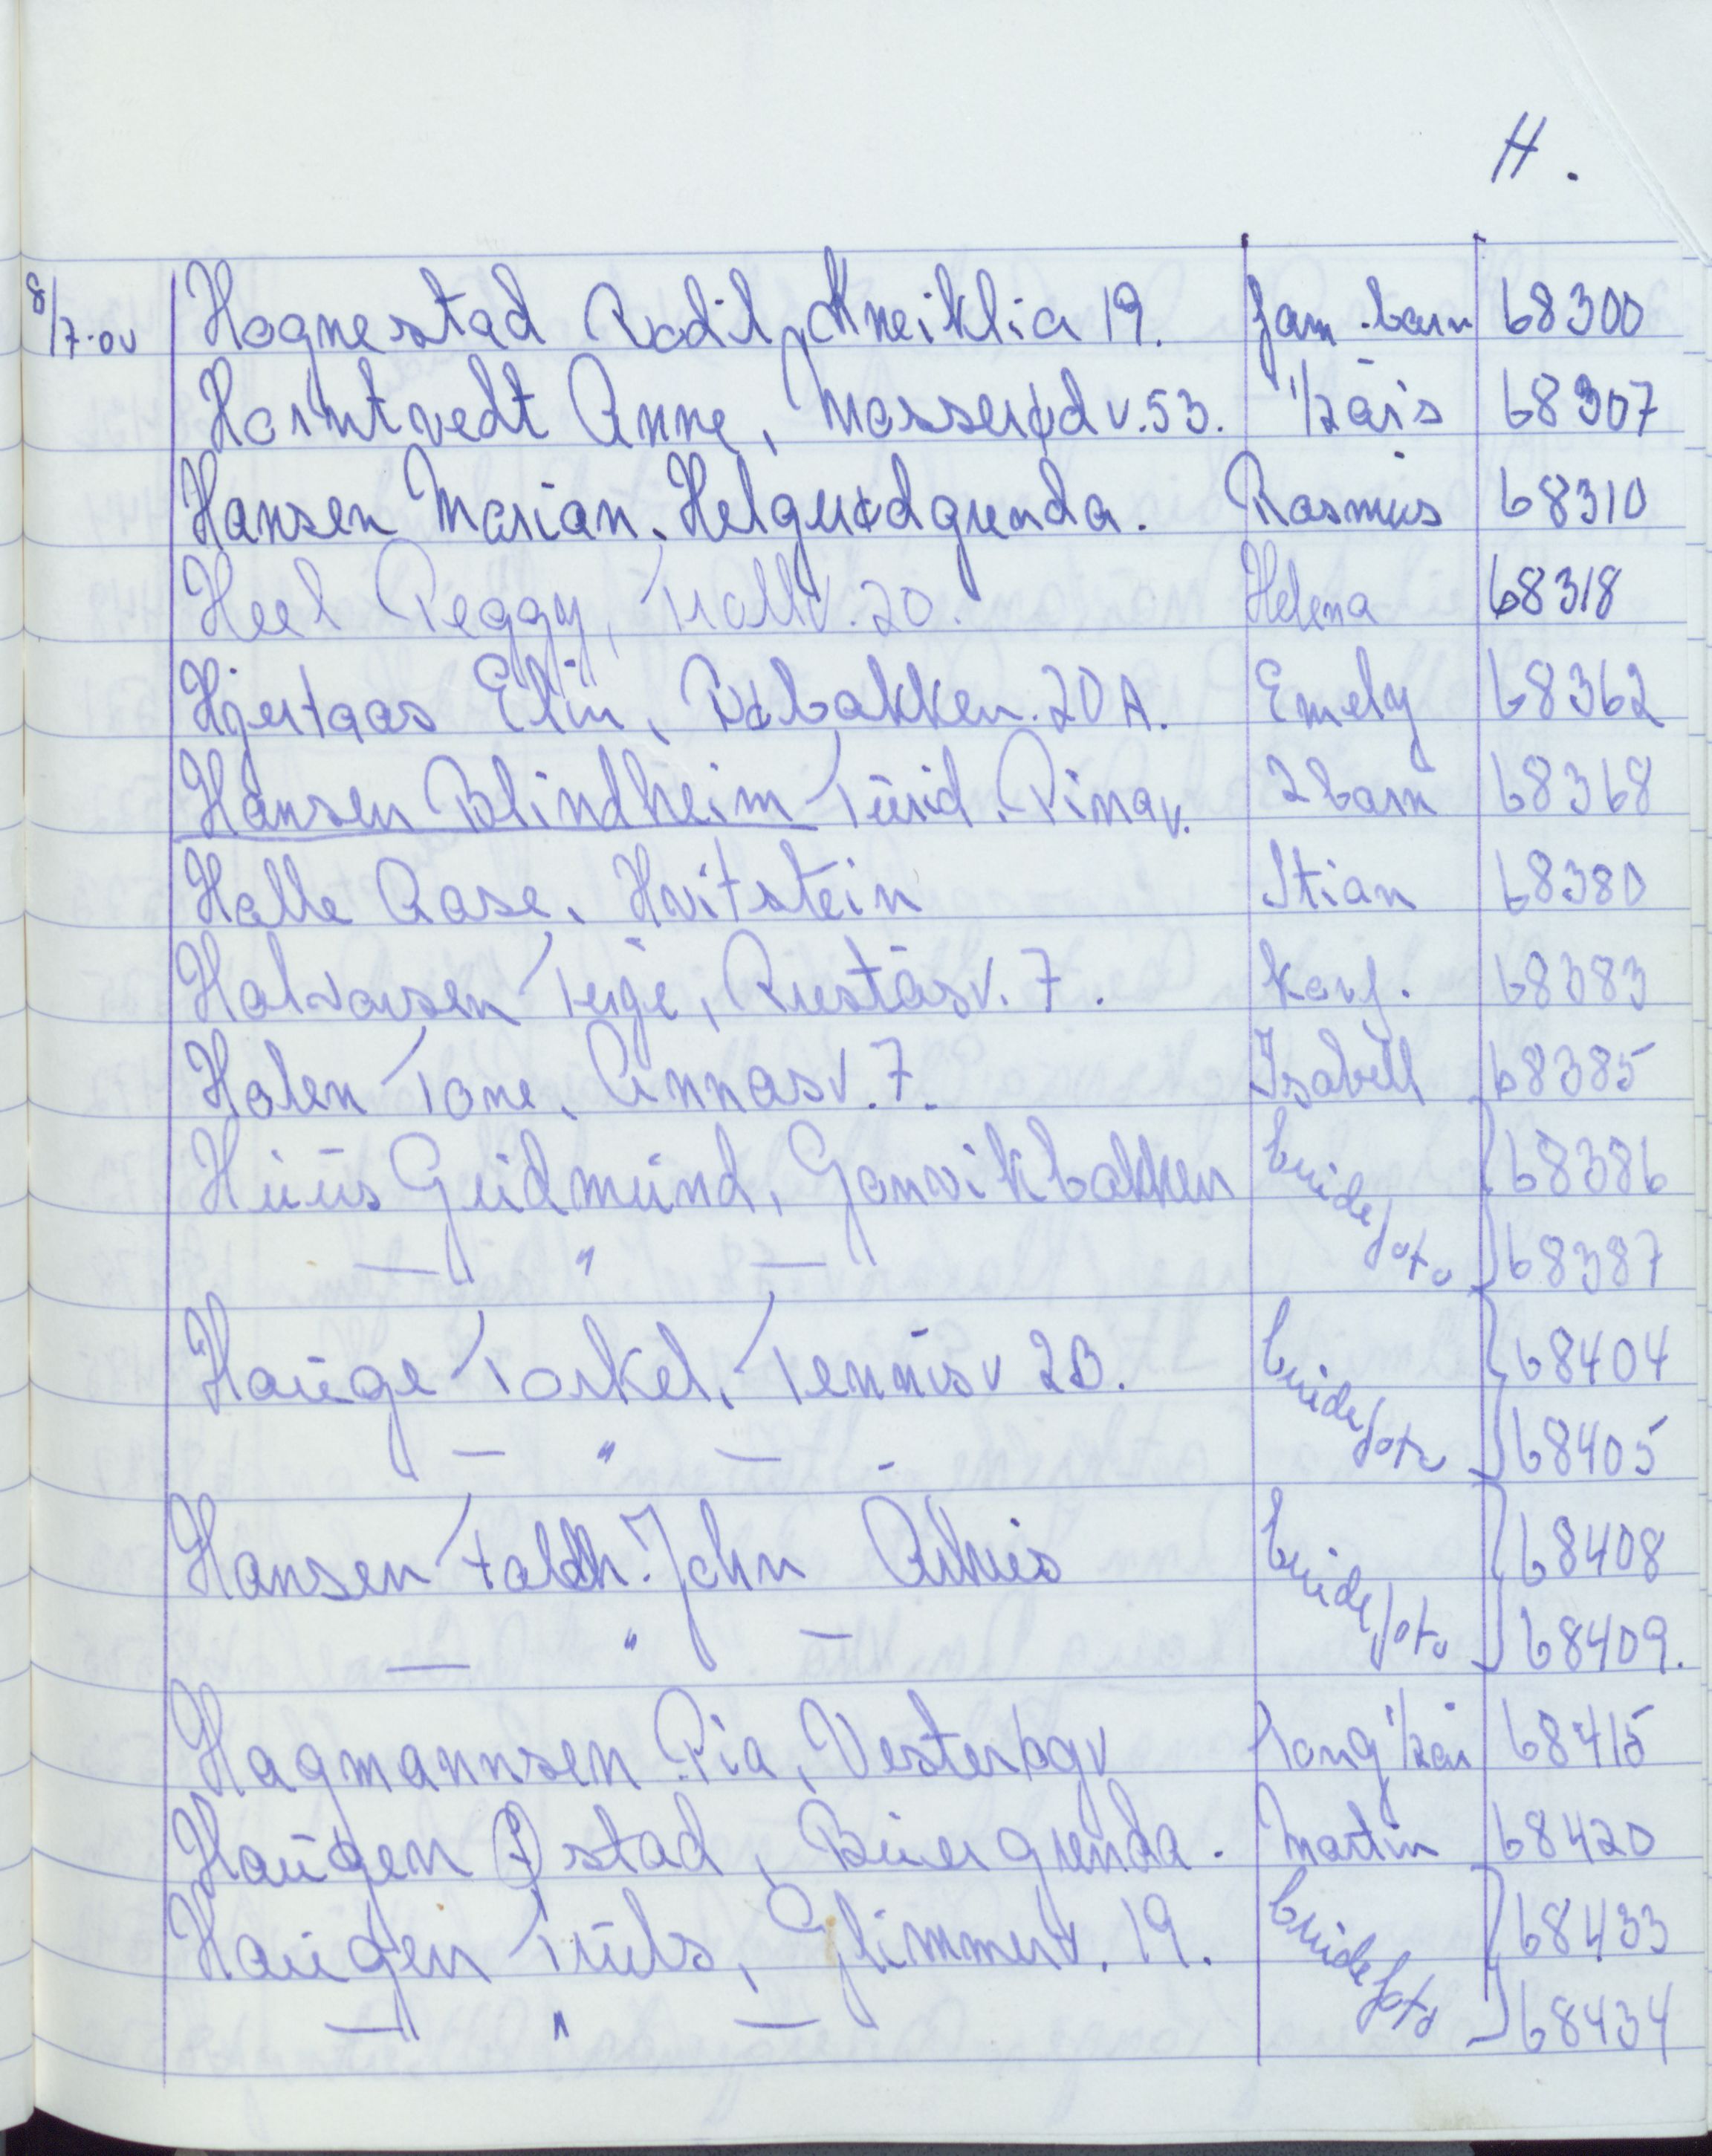 H.
8/7.00 Hognestad Bodil, Kneiklia 19. fam.barn 68300
Horntvedt Anne, Mosserød v.53. 1/2 års 68307
Hansen Marian, Helgerødgrenda. Rasmus 68310
Heel Peggy, Trollv. 20. Helena 68318
Hjertaas Elin, Røbakken. 20A. Emely 68362
Hansen Blindheim Turid. Pinav. 2 barn 68368
Halle Aase, Hvitstein Stian 68380
Halvorsen Terje, Ruståsv. 7. Konf. 68383
Holen Tone, Annasv. 7. Isabell 68385
Huus Gudmund, Gonvikbakken brudefoto 68386
— " — 68387
Hauge Torkel, Tennisv 2B. brudefoto 68404
— " — - 68405
Hansen Foldh. John brudefoto 68408
— " — 68409.
Hagmannsen Pia, Vesterøgv 1/2 år 68415
Haugen Østad, Buergrenda. Martin 68420
Haugen Truls, Glimmerv. 19. brudefoto 68433
— " — 68434